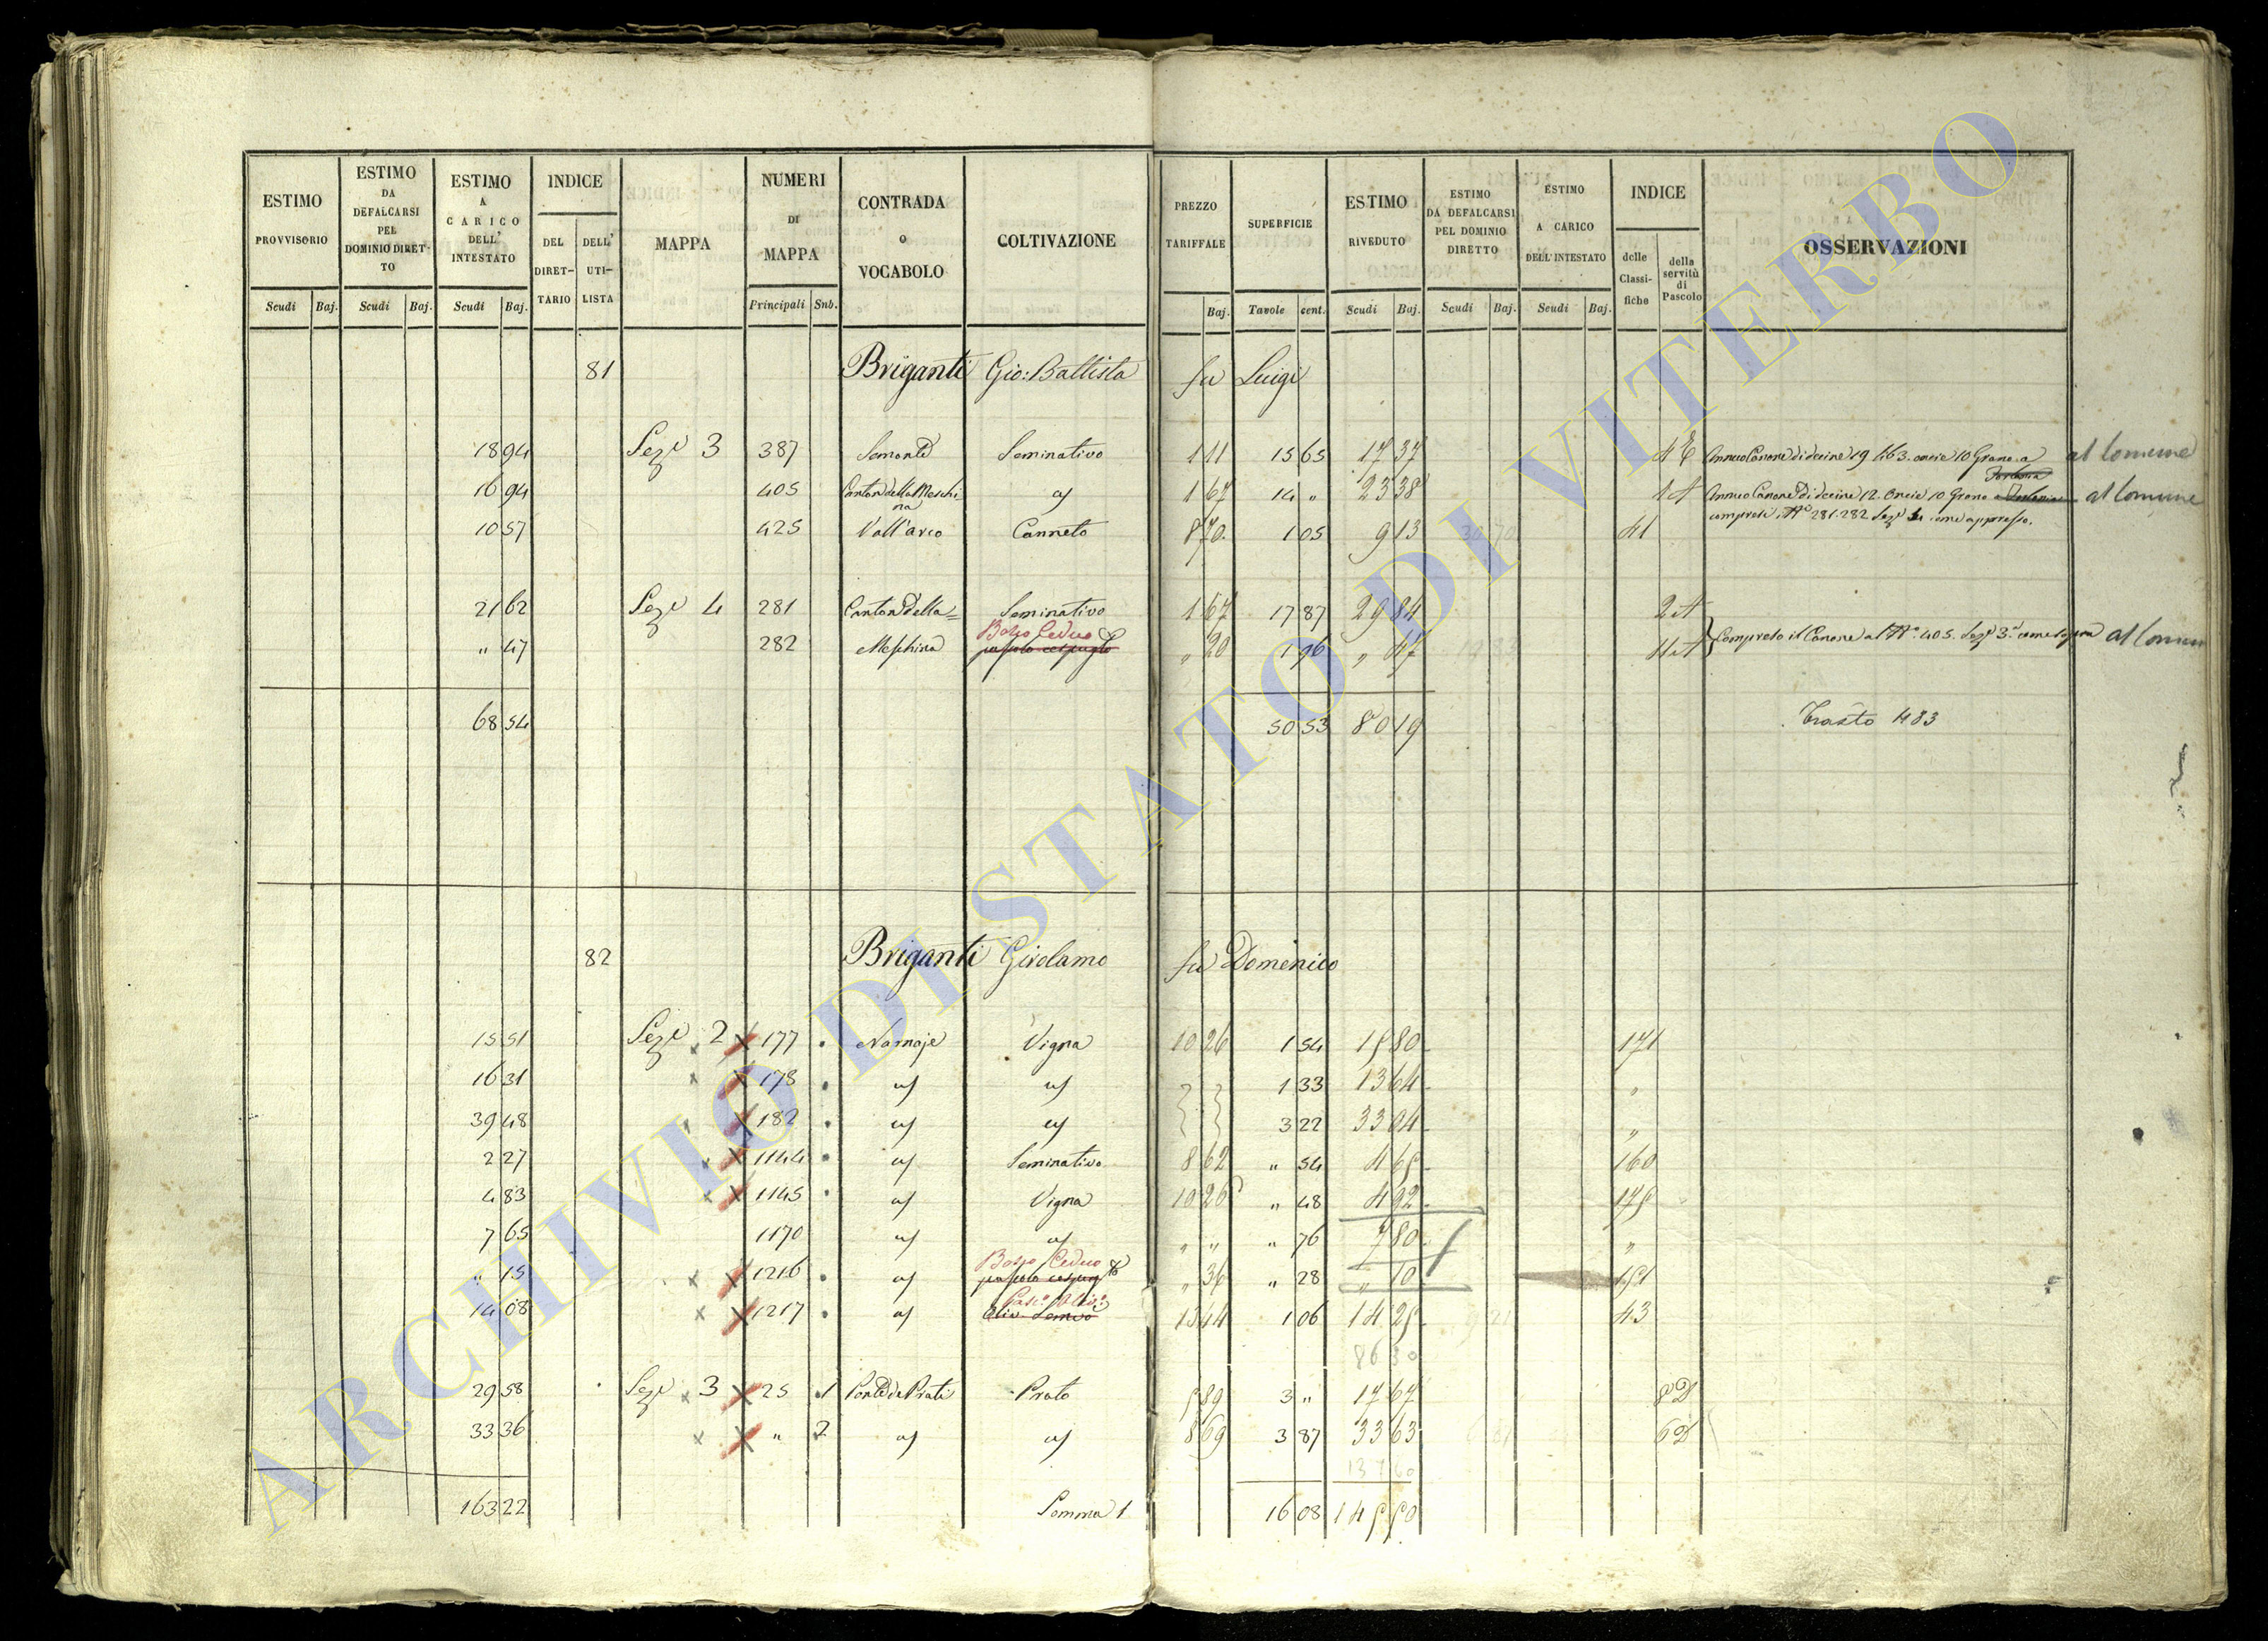 ESTIMO PROVVISORIO Scudi Baj.
ESTIMO DA DEFALCARSI PEL DOMINIO DIRET-TO Scudi Baj.
ESTIMO A CARICO DELL' INTESTATO Scudi Baj.
INDICE DEL DIRET-TARIO DELL' UTI-LISTA
MAPPA
NUMERI DI MAPPA Principali Sub.
CONTRADA O VOCABOLO
COLTIVAZIONE
PREZZO TARIFFALE Baj.
SUPERFICIE Tavole cent.
ESTIMO RIVEDUTO Scudi Baj.
ESTIMO DA DEFALCARSI PEL DOMINIO DIRETTO Scudi Baj.
ESTIMO A CARICO DELL'INTESTATO Scudi Baj.
INDICE delle Classi-fiche della servitù di Pascolo
OSSERVAZIONI
81 Briganti Gio: Battista fu Luigi
18 94 Sez.e 3 387 Semonte Seminativo 1 11 15 65 17 37 4 E Annuo Canone di decine 19 lb 3. oncie 10 Grano a al Comune
16 94 405 Canton della Meschina 1 67 14 " 23 38 1 A Annuo Canone di decine 12. Oncie 10 Grano al Comune
compresi i N.i 281. 282 Sez.e 4 come appresso.
10 57 425 Vall'arco Canneto 8 70. 1 05 9 13 41
21 62 Sez.e 4 281 Canton della= Seminativo 1 67 17 87 29 84 2 A
" 47 282 Meschina Bosco Ceduo pascolo cespugl.to " 20 1 96 " 47 4 A Compreso il Canone al N.o 405. Sez.e 3.a come sopra al Comun
68 54 50 53 80 19 Trasto 483
82 Briganti Girolamo fu Domenico
15 51 Sez.e 2 177 Narnaje Vigna 10 26 1 54 15 80 171
16 31 178 1 33 13 64 "
39 48 182 3 22 33 04 "
2 27 1144 Seminativo 8 62 " 54 4 65 160
4 83 1145 Vigna 10 26 " 48 4 92 175
7 65 1170 " " " 76 7 80 "
" 15 1216 Bosco Ceduo pascolo cespugl.to " 36 " 28 " 10 151
14 08 1217 Oliv. Semivo 13 44 1 06 14 25 43
86 30
29 58 Sez.e 3 25 1 Ponte de Prati Prato 5 89 3 " 17 67 8 D
33 36 " 2 8 69 3 87 33 63 6 D
137 60
163 22 Somma 1 16 08 145 50
ARCHIVIO DI STATO DI VITERBO